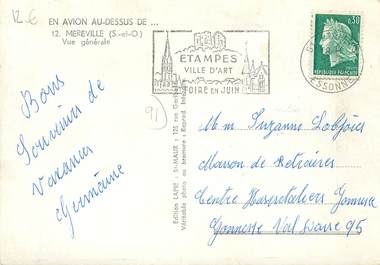 12 €
EN AVION AU-DESSUS DE ...
12. MEREVILLE (S.-et-O.)
Vue générale
ETAMPES
VILLE D'ART
FOIRE EN JUIN
0,30
REPUBLIQUE FRANÇAISE
ESSONNE
91
Bons
Souvenirs de
Vacances
Germaine
Edition LAPIE : St-MAUR : 125 rue
Véritable photo au bromure : Reprod. Interd.
Mm Suzanne
Maison de Retraites
Centre
Gonesse Val 95